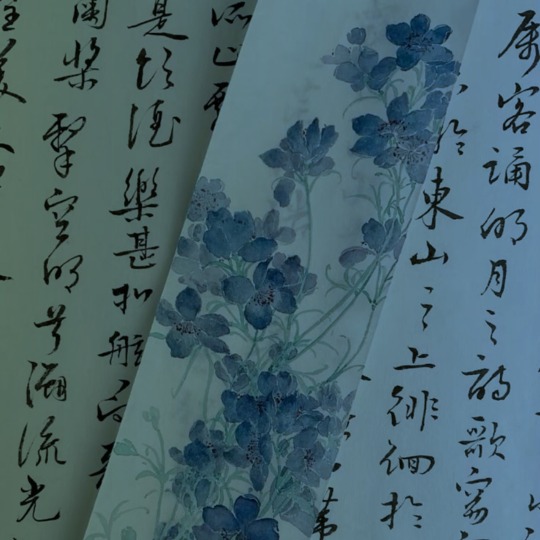 屬客誦明月之詩歌窈
於東山之上徘徊於
是飲酒樂甚扣舷而
蘭槳擊空明兮溯流光
美人